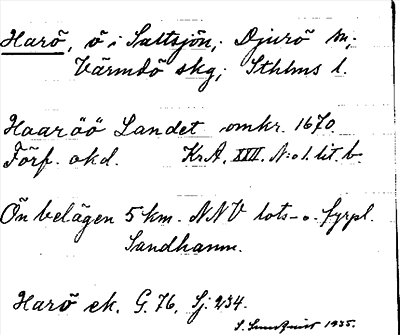 Harö, ö i Saltsjön; Djurö sn;
Värmdö skg; Sthlms l.
Haaröö Landet omkr. 1670
Förf. okd. Kr.A. XXII. N:o 1. lit. b.
Ön belägen 5 km. NNV lots- o. fyrpl.
Sandhamn.
Harö ek. G. 76. Sj: 234.
1935.